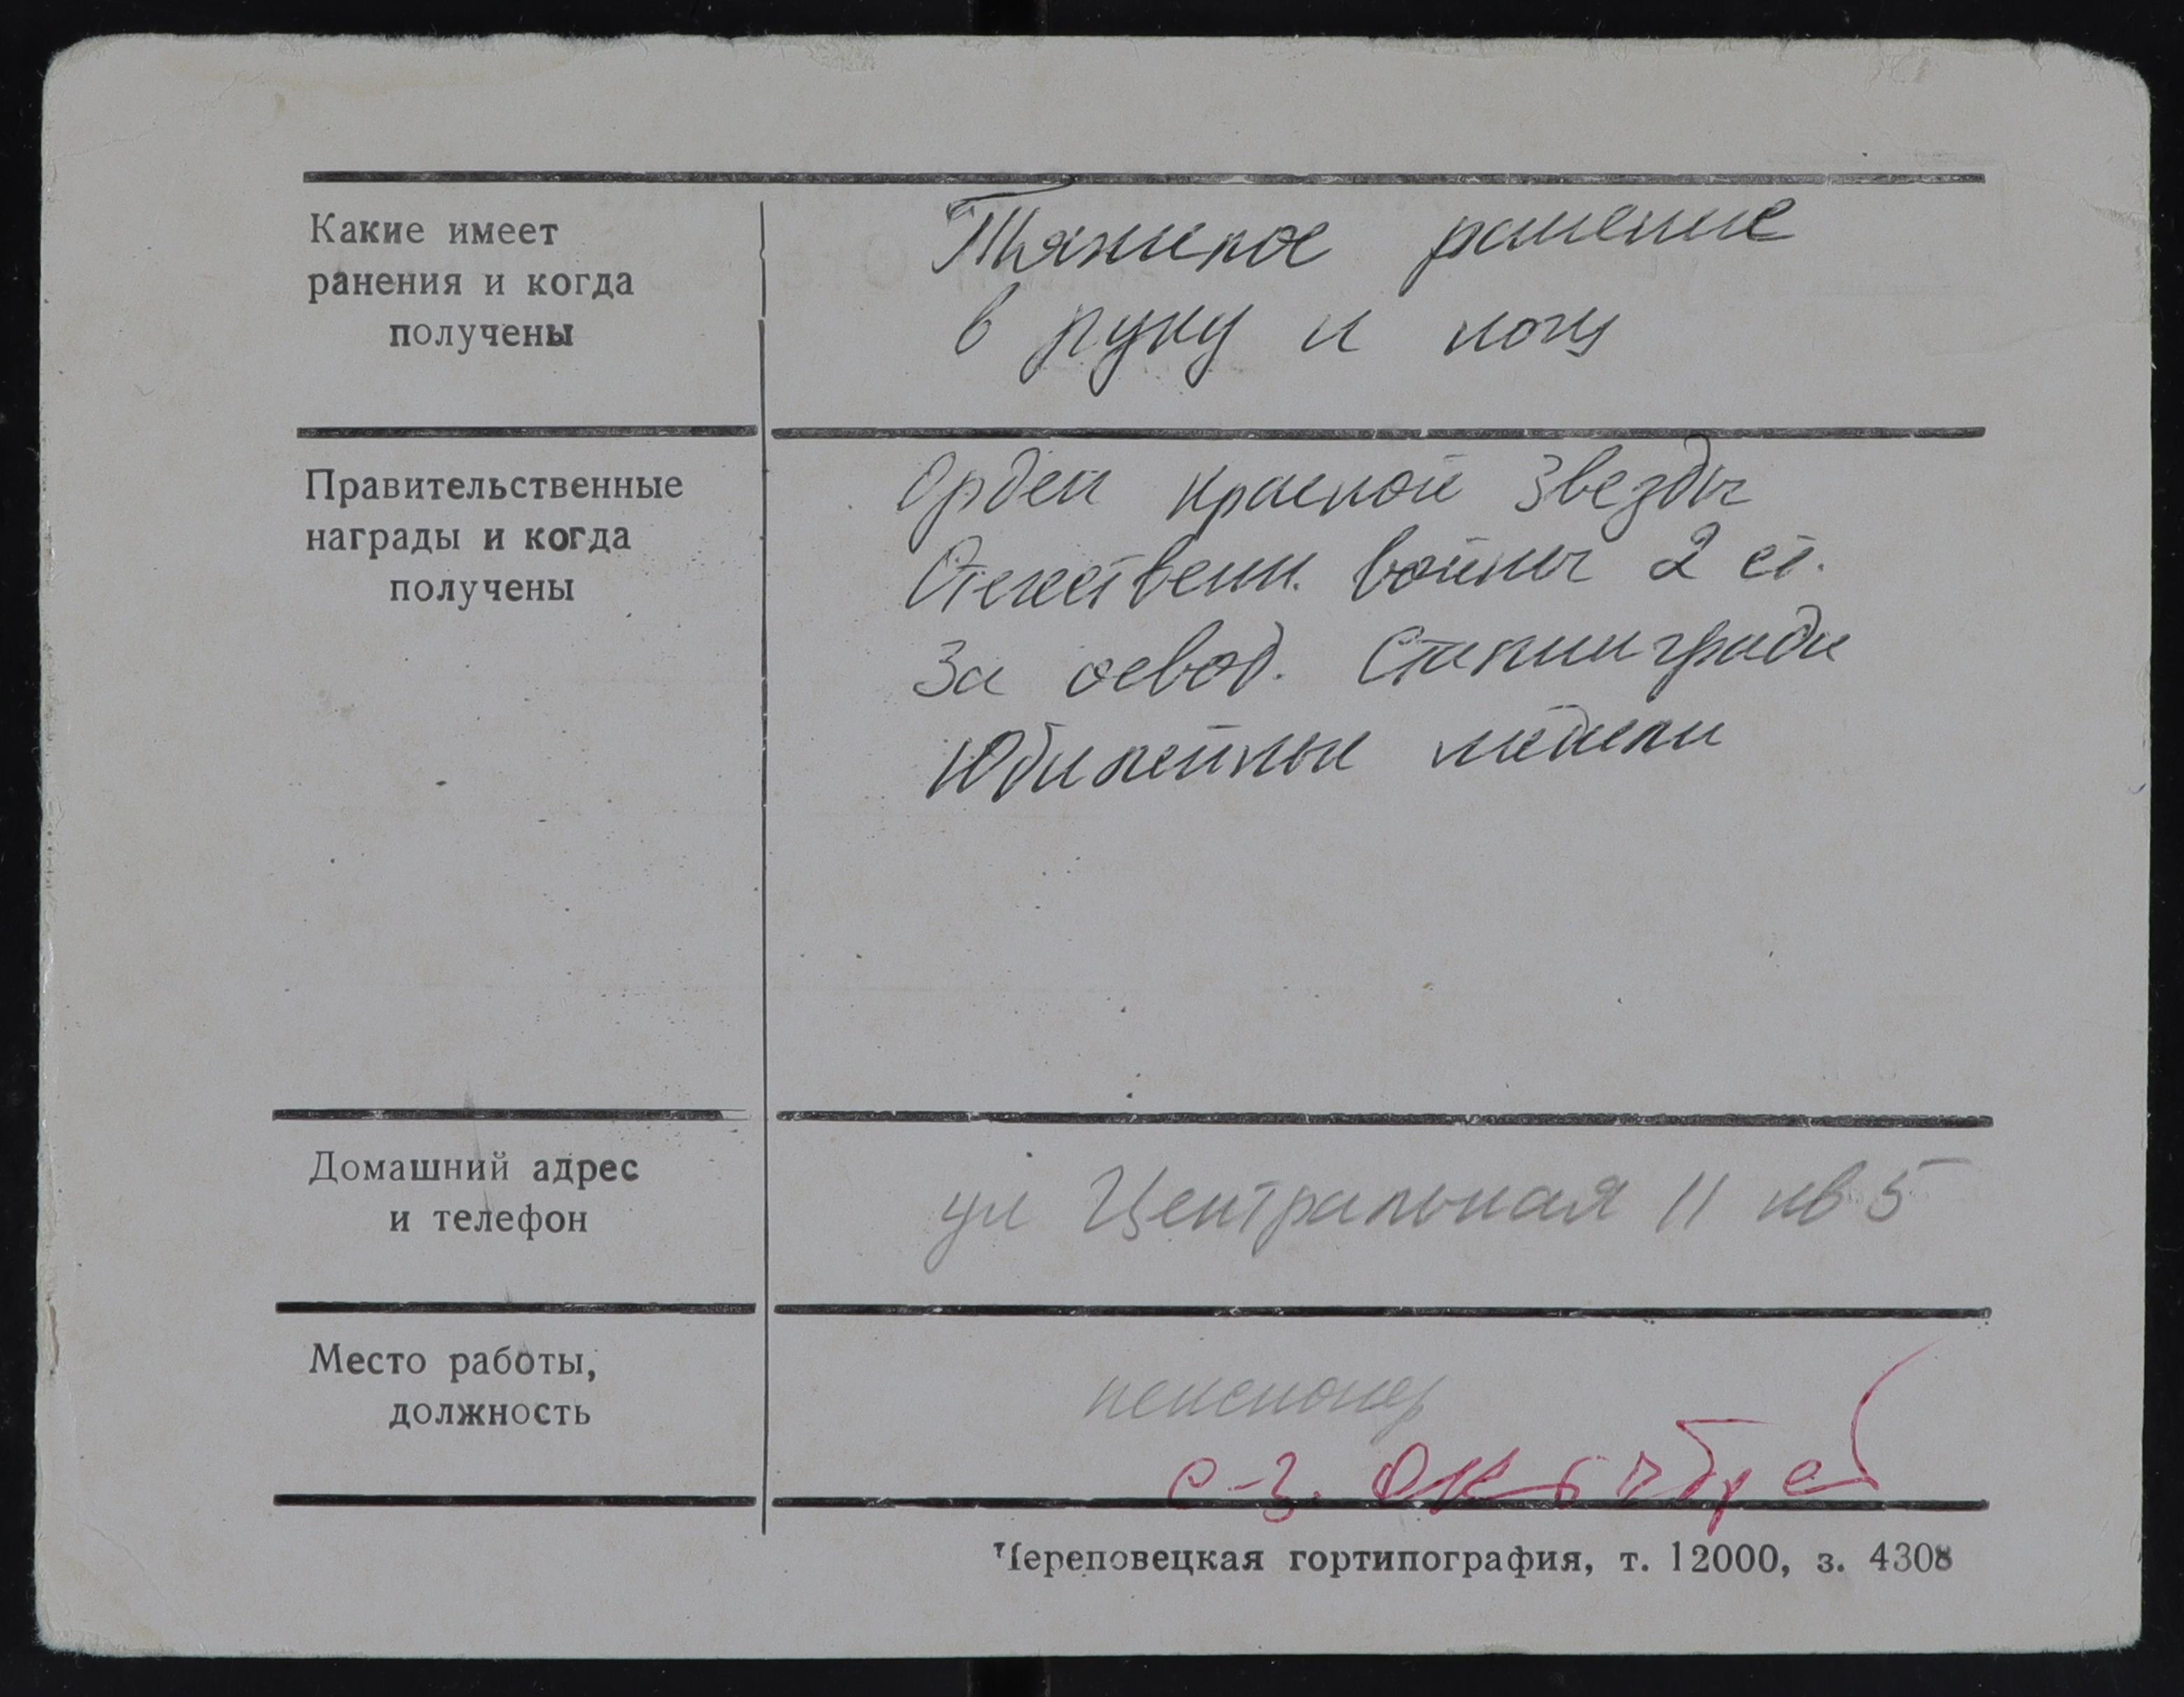 Какие имеет
ранения и когда
получены
Тяжелое ранение
в руку и ногу
Правительственные
награды и когда
получены
Орден Красной Звезды
Отечествен. войны 2 ст.
За освоб. Сталинграда
Юбилейные медали
Домашний адрес
и телефон
ул Центральная 11 кв 5
Место работы,
должность
пенсионер
с-з. Октябрь
Череповецкая гортипография, т. 12000, з. 4308